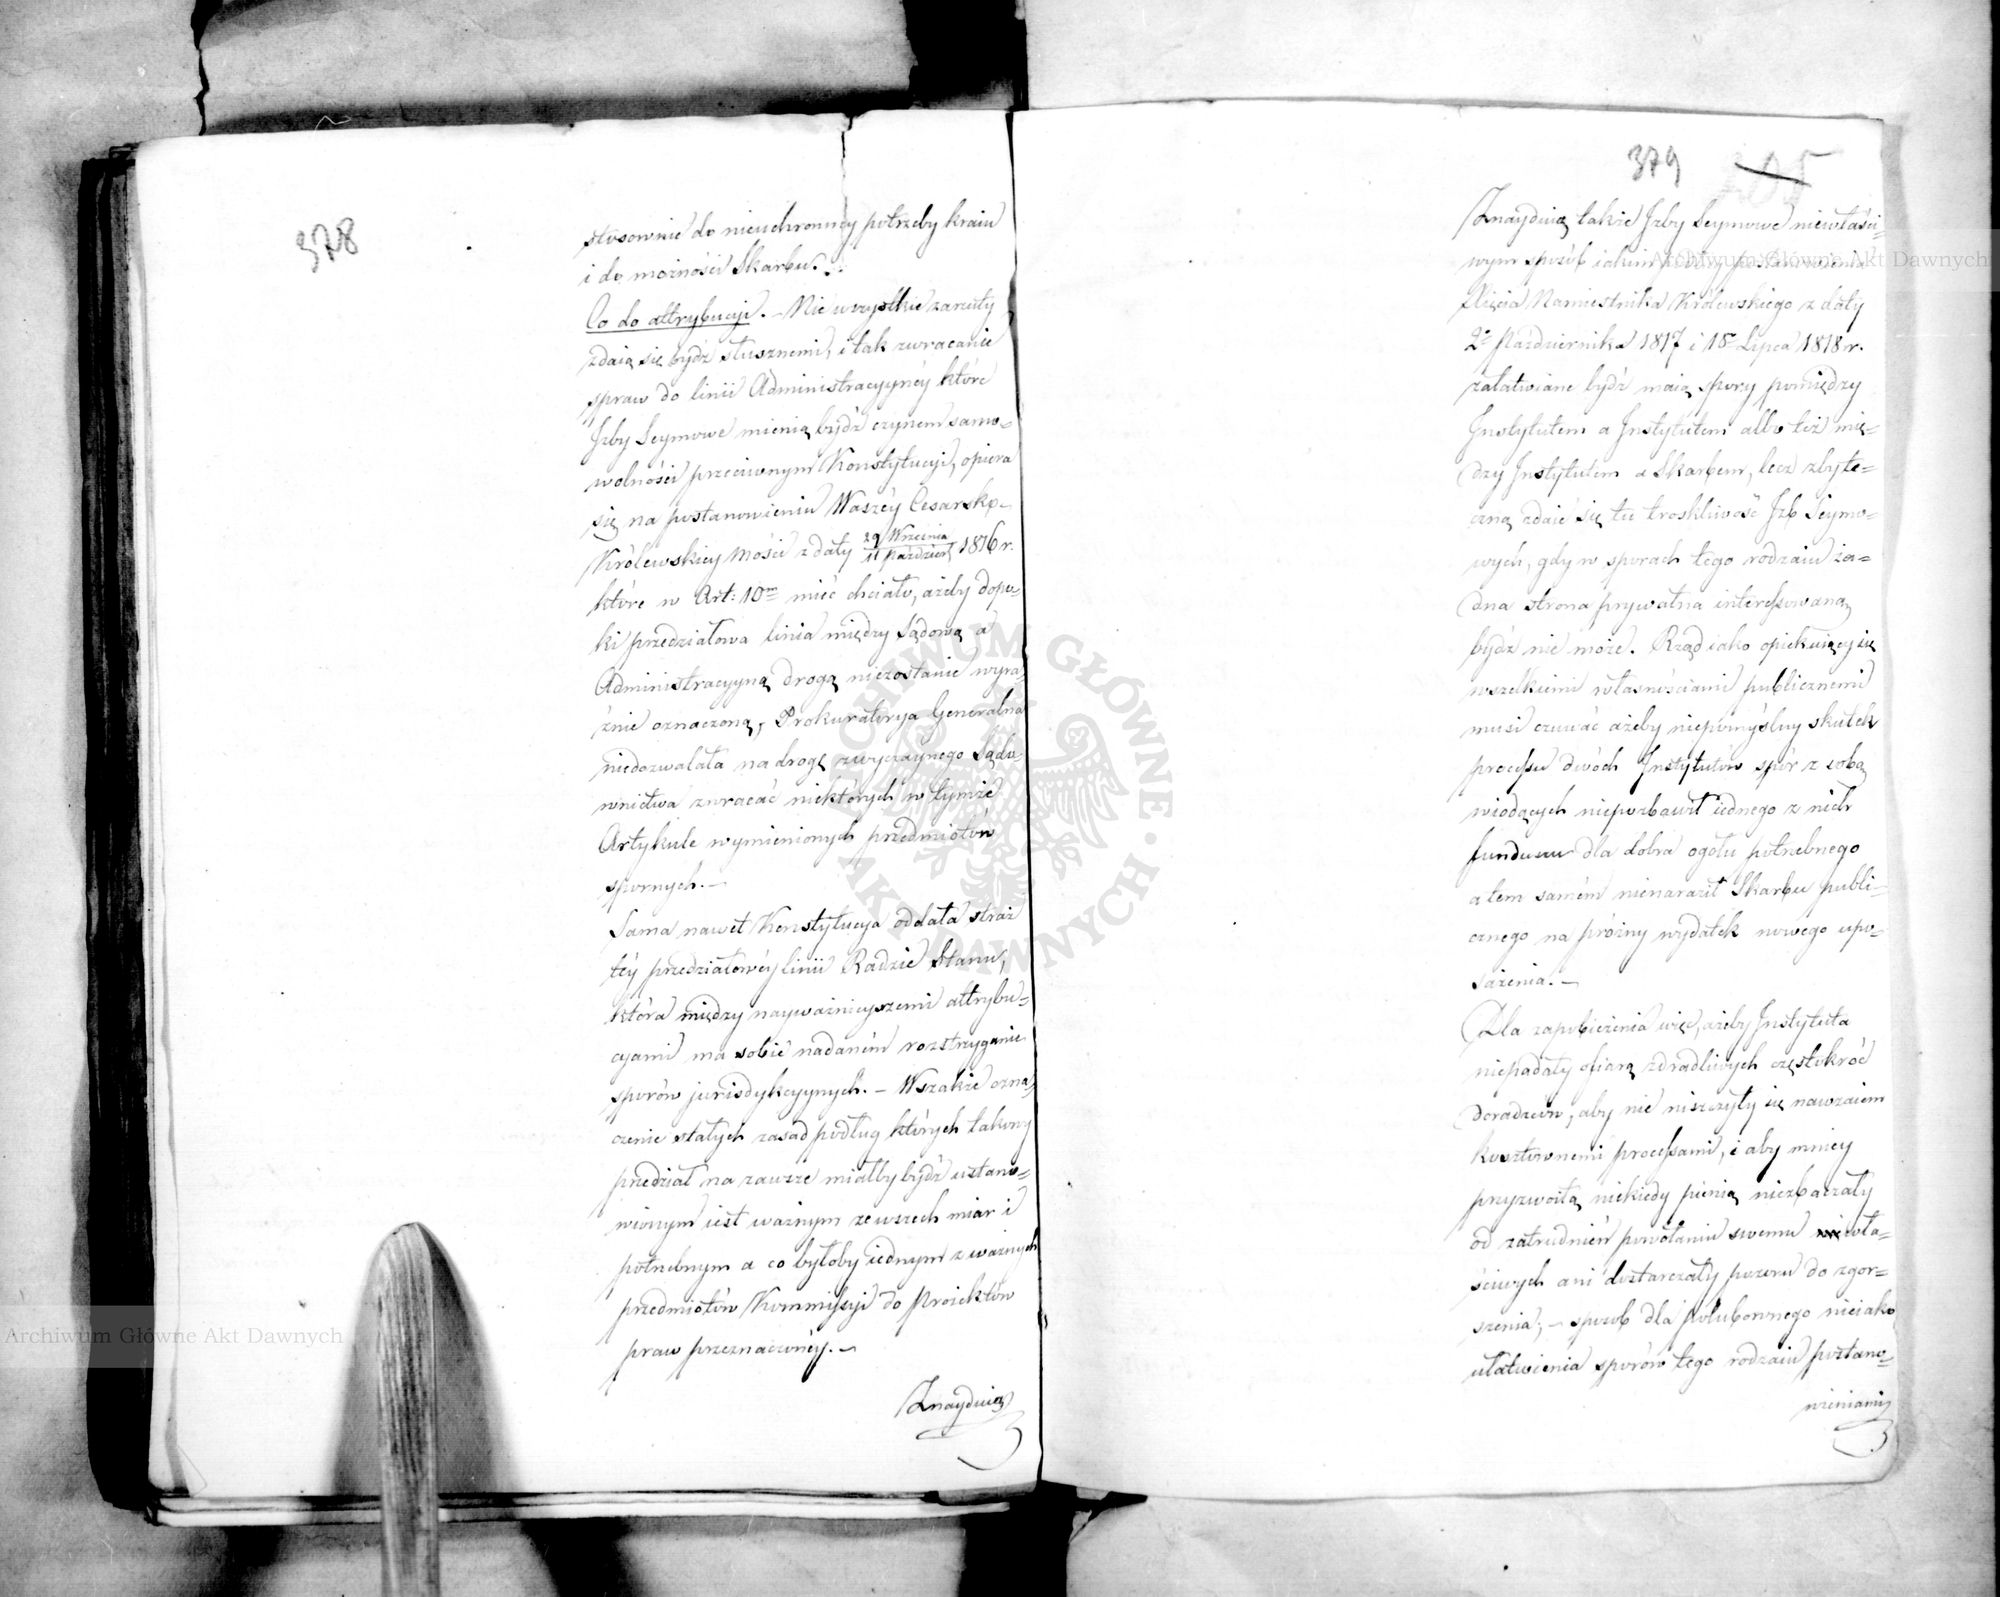 378
stosownie do nieuchronney potrzeby kraiu
i do możności Skarbu.
Co do attrybucyi. – Nie wszystkie zarzuty
zdaią się bydź słusznemi, i tak zwracanie
spraw do linii Administracyynéy które
Izby Seymowe mienią bydź czynem samo=
wolności przeciwnym Konstytucyi, opiera
się na postanowieniu Waszéy Cesarsko-
Królewskiey Mości z daty 29 Września / 11 Paździer: 1816 r.
które w Art: 10m mieć chciało, ażeby dopó=
ki przedziałowa linia między Sądową a
Administracyyną drogą niezostanie wyra=
źnie oznaczoną, Prokuratorya Generalna
niedozwalała na drogę zwyczaynego Sądo=
wnictwa zwracać niektórych w tymże
Artykule wymienionych przedmiotów
spornych. –
Sama nawet Konstytucya oddała straż
téy przedziałowéy linii Radzie Stanu,
która między nayważnieyszemi attrybu=
cyami ma sobie nadaném rozstrzyganie
sporów jurisdykcyynych. – Wszakże ozna=
czenie stałych zasad podług których takowy
przedział na zawsze miałby bydź ustano=
wionym iest ważnym ze wszech miar i
potrzebnym a co byłoby iednym z ważnych
przedmiotów Kommissyi do Proiektów
praw przeznaczonéy. –
Znayduią
379
Znayduią także Izby Seymowe niewłaści=
wym sposób iakim podług postanowienia
Xięcia Namiestnika Królewskiego z daty
2o Października 1817 i 18o Lipca 1818 r.
załatwiane bydź maią spory pomiędzy
Instytutem a Instytutem albo też mię=
dzy Instytutem a Skarbem, lecz zbyte=
czną zdaie się tu troskliwość Izb Seymo=
wych, gdy w sporach tego rodzaiu ża=
dna strona prywatna interessowaną
bydź nie może. Rząd iako opiekuiący się
wszelkiemi własnościami publicznemi
musi czuwać ażeby niepomyślny skutek
processu dwóch Instytutów spór z sobą
wiodących niepozbawił iednego z nich
funduszu dla dobra ogółu potrzebnego
a tem samém nienaraził Skarbu publi=
cznego na próżny wydatek nowego upo=
sażenia. –
Dla zapobieżenia więc, ażeby Instytuta
niepadały ofiarą zdradliwych częstokróć
Doradzców, aby nie niszczyły się nawzaiem
kosztownemi processami, i aby mniey
przyzwoitą niekiedy pienią niezbaczały
od zatrudnień powołaniu swemu wła=
ściwych ani dostarczały pozoru do zgor=
szenia; – sposób dla polubownego nieiako
ułatwienia sporów tego rodzaiu postano=
wieniami
Archiwum Główne Akt Dawnych
Archiwum Główne Akt Dawnych
ARCHIWUM GŁÓWNE AKT DAWNYCH